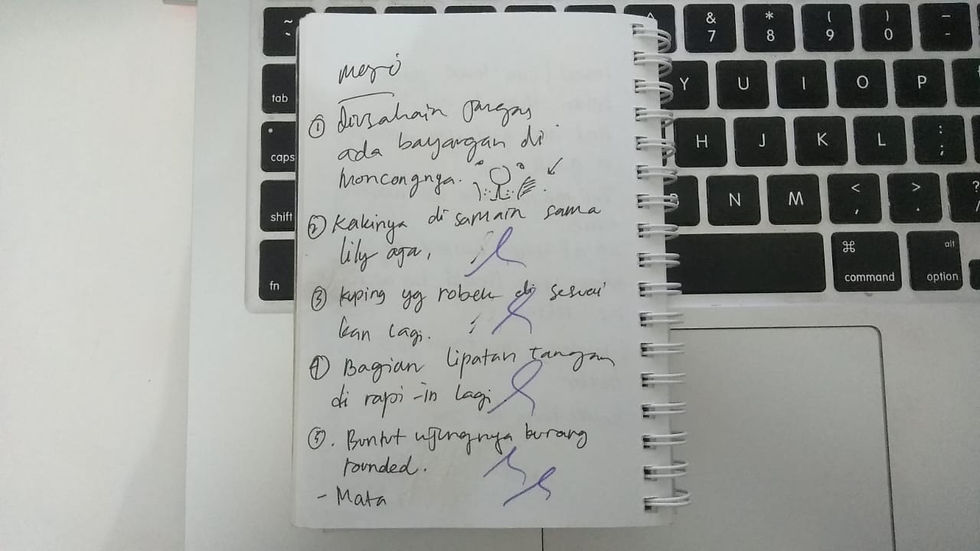 ① diusahain jangan
ada bayangan di
moncongnya.
② Kakinya di samain sama
lily aja.
③ kuping yg robek di sesuai
kan lagi.
④ Bagian lipatan tangan
di rapi-in lagi
⑤. Buntut ujungnya kurang
rounded.
- Mata
~
& 7
* 8
( 9
) 0
-
tab
Y U I O P
caps
H J K L : ;
shift
N M < , > .
fn
⌘ command
alt option